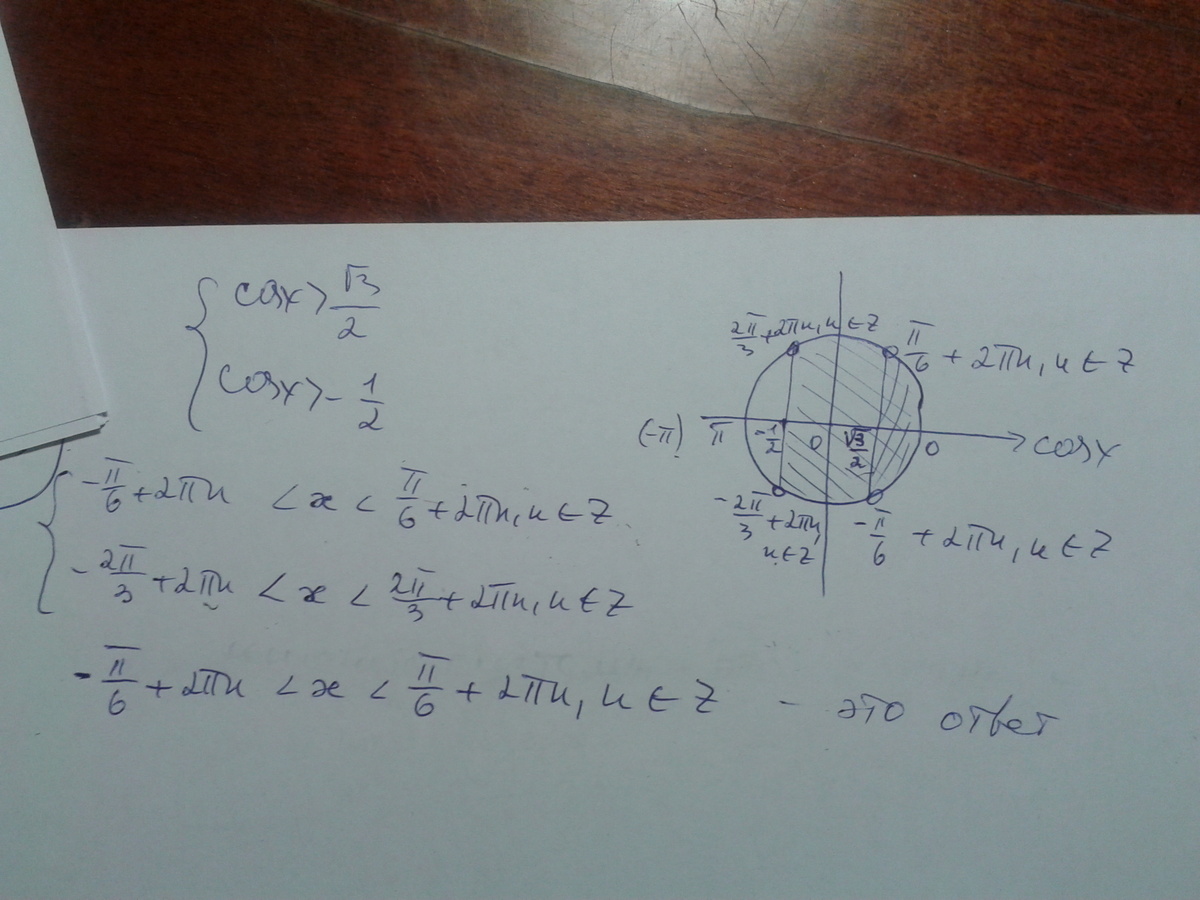 { cosx > √3/2
cosx > -1/2
{ -π/6 + 2πn < x < π/6 + 2πn, n ∈ Z
-2π/3 + 2πn < x < 2π/3 + 2πn, n ∈ Z
-π/6 + 2πn < x < π/6 + 2πn, n ∈ Z - это ответ
2π/3 + 2πn, n ∈ Z
π/6 + 2πn, n ∈ Z
(-π) π -1/2 0 √3/2 0 cosx
-2π/3 + 2πn,
n ∈ Z
-π/6 + 2πn, n ∈ Z